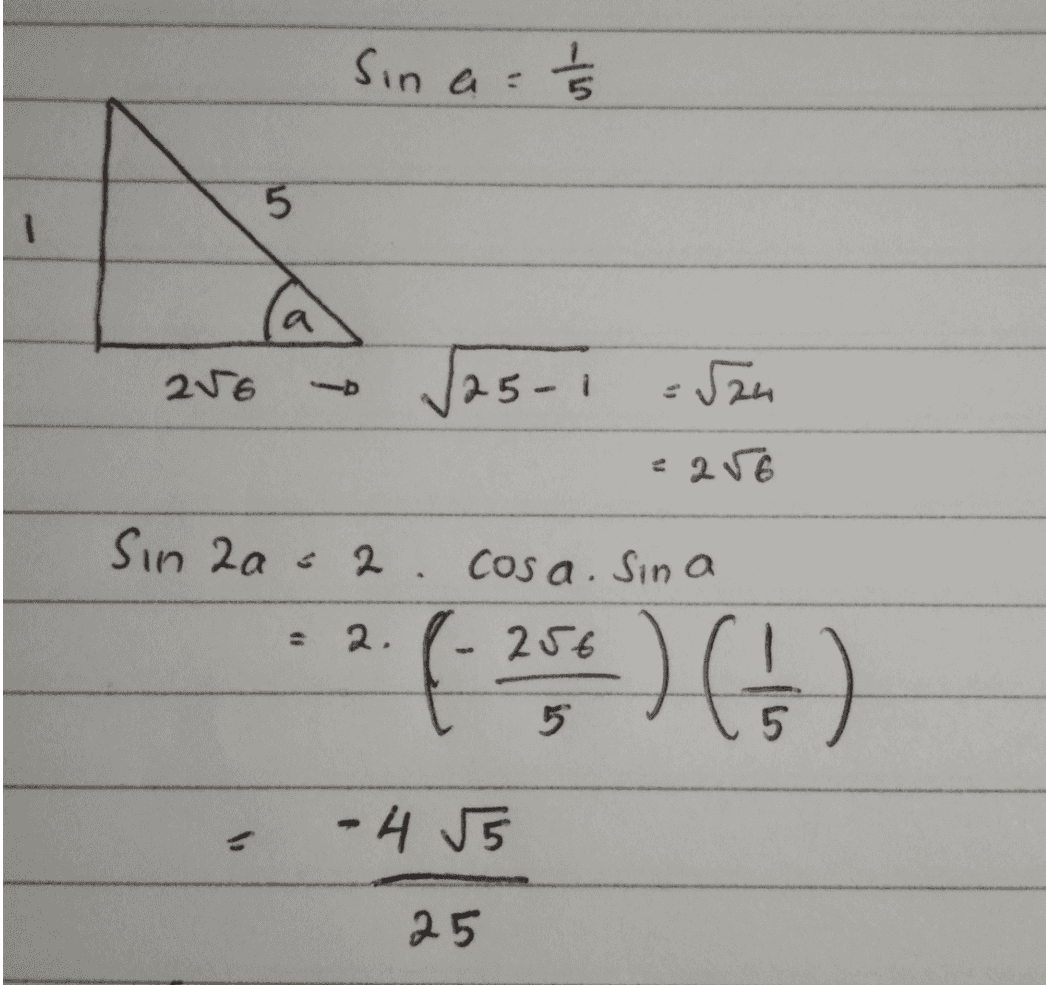 Sin a = 1/5
5
1
a
2√6 → √25-1 = √24
= 2√6
Sin 2a = 2 . cos a . Sin a
= 2. (- 2√6/5) (1/5)
= -4 √5/25